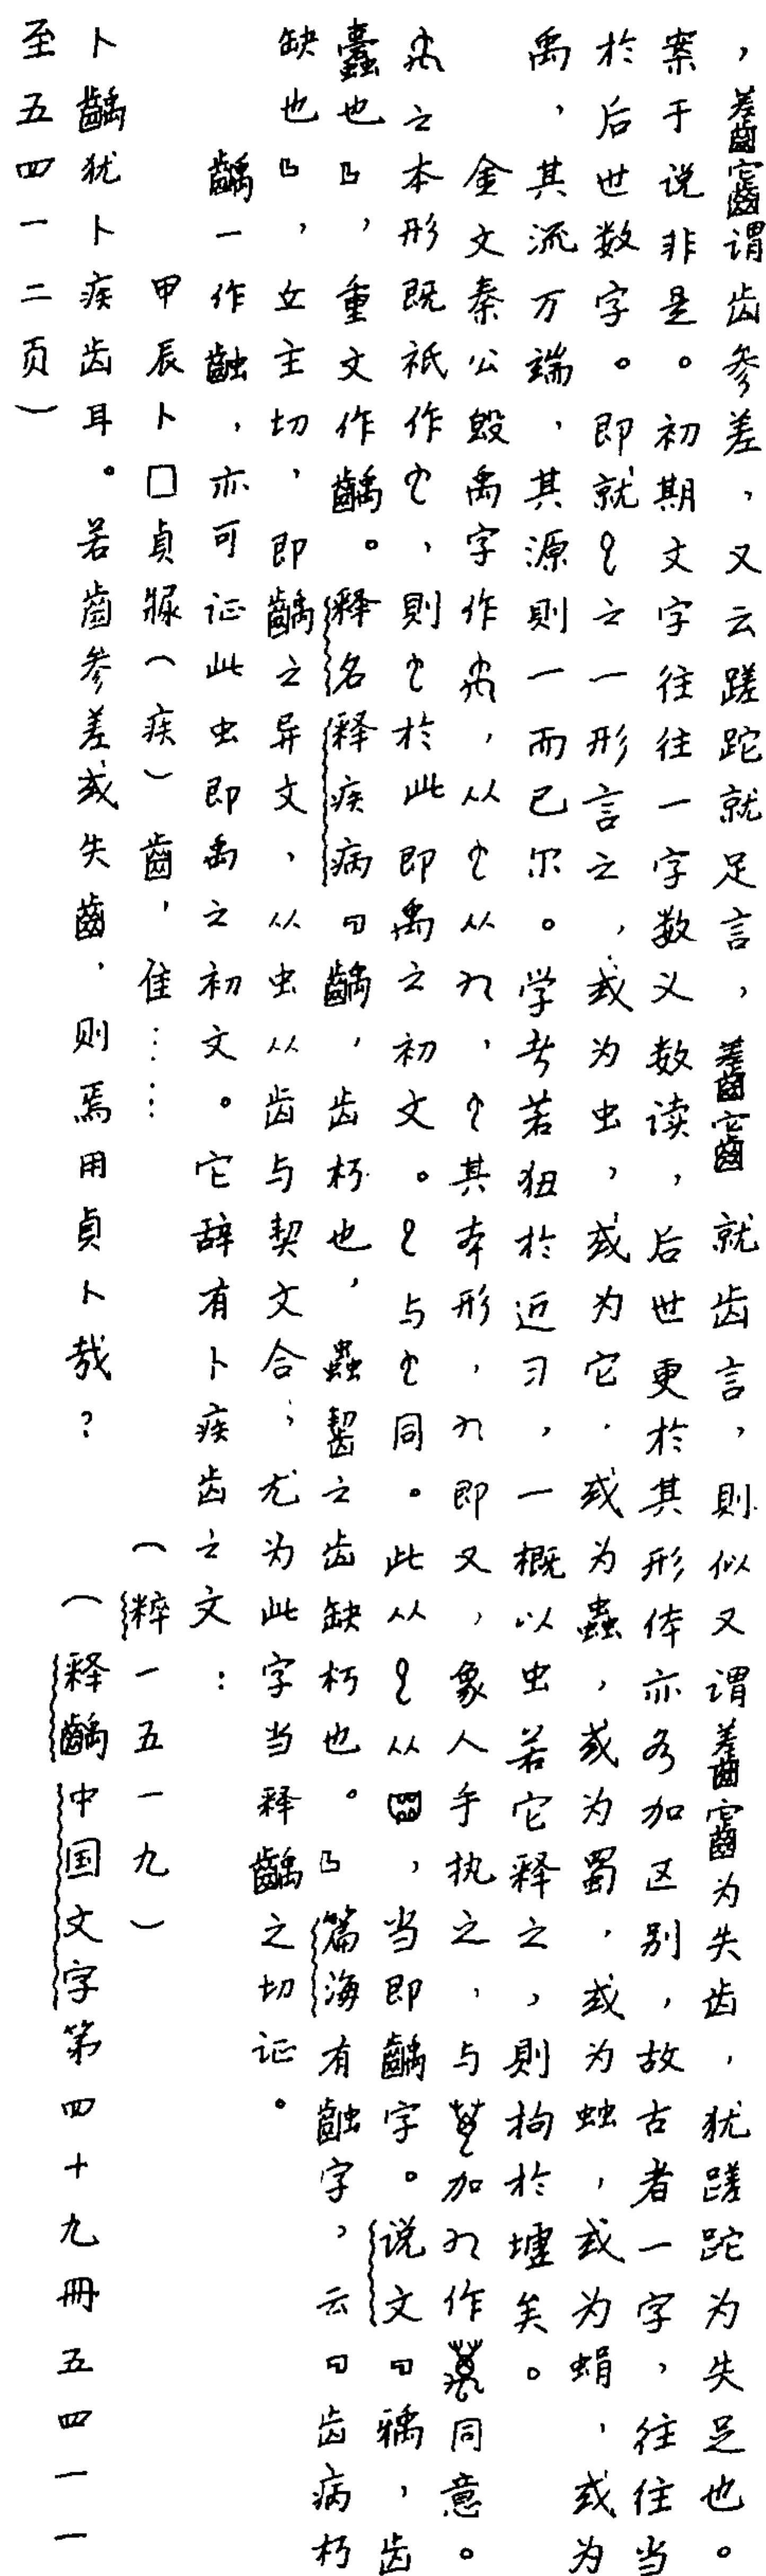 ，齹谓齿参差，又云蹉跎就足言，齹就齿言，則似又谓齹为失齿，犹蹉跎为失足也。
案于说非是。初期文字往往一字数义数读，后世更於其形体亦各加区别，故古者一字，往往当
於后世数字。即就之一形言之，或为虫，或为它，或为蟲，或为蜀，或为蚰，或为蜎，或为
禹，其流万端，其源則一而已尔。学者若狃於近习，一概以虫若它释之，則拘於墟矣。
金文秦公毁禹字作，从从，其本形，即又，象人手执之，与加作同意。
之本形既祇作，則於此即禹之初文。与同。此从从，当即齲字。说文『𤘐，齿
蠹也』，重文作齲。释名释疾病『齲，齿朽也，蟲齧之齿缺朽也。』篇海有字，云『齿病朽
缺也』，丘主切，即齲之异文，从虫从齿与契文合；尤为此字当释齲之切证。
齲一作，亦可证此虫即禹之初文。它辞有卜疾齿之文：
甲辰卜□貞（疾）齒，隹……（粹一五一九）
卜齲犹卜疾齿耳。若齒参差或失齒，则焉用貞卜哉？（释齲中国文字第四十九冊五四一一
至五四一二页）